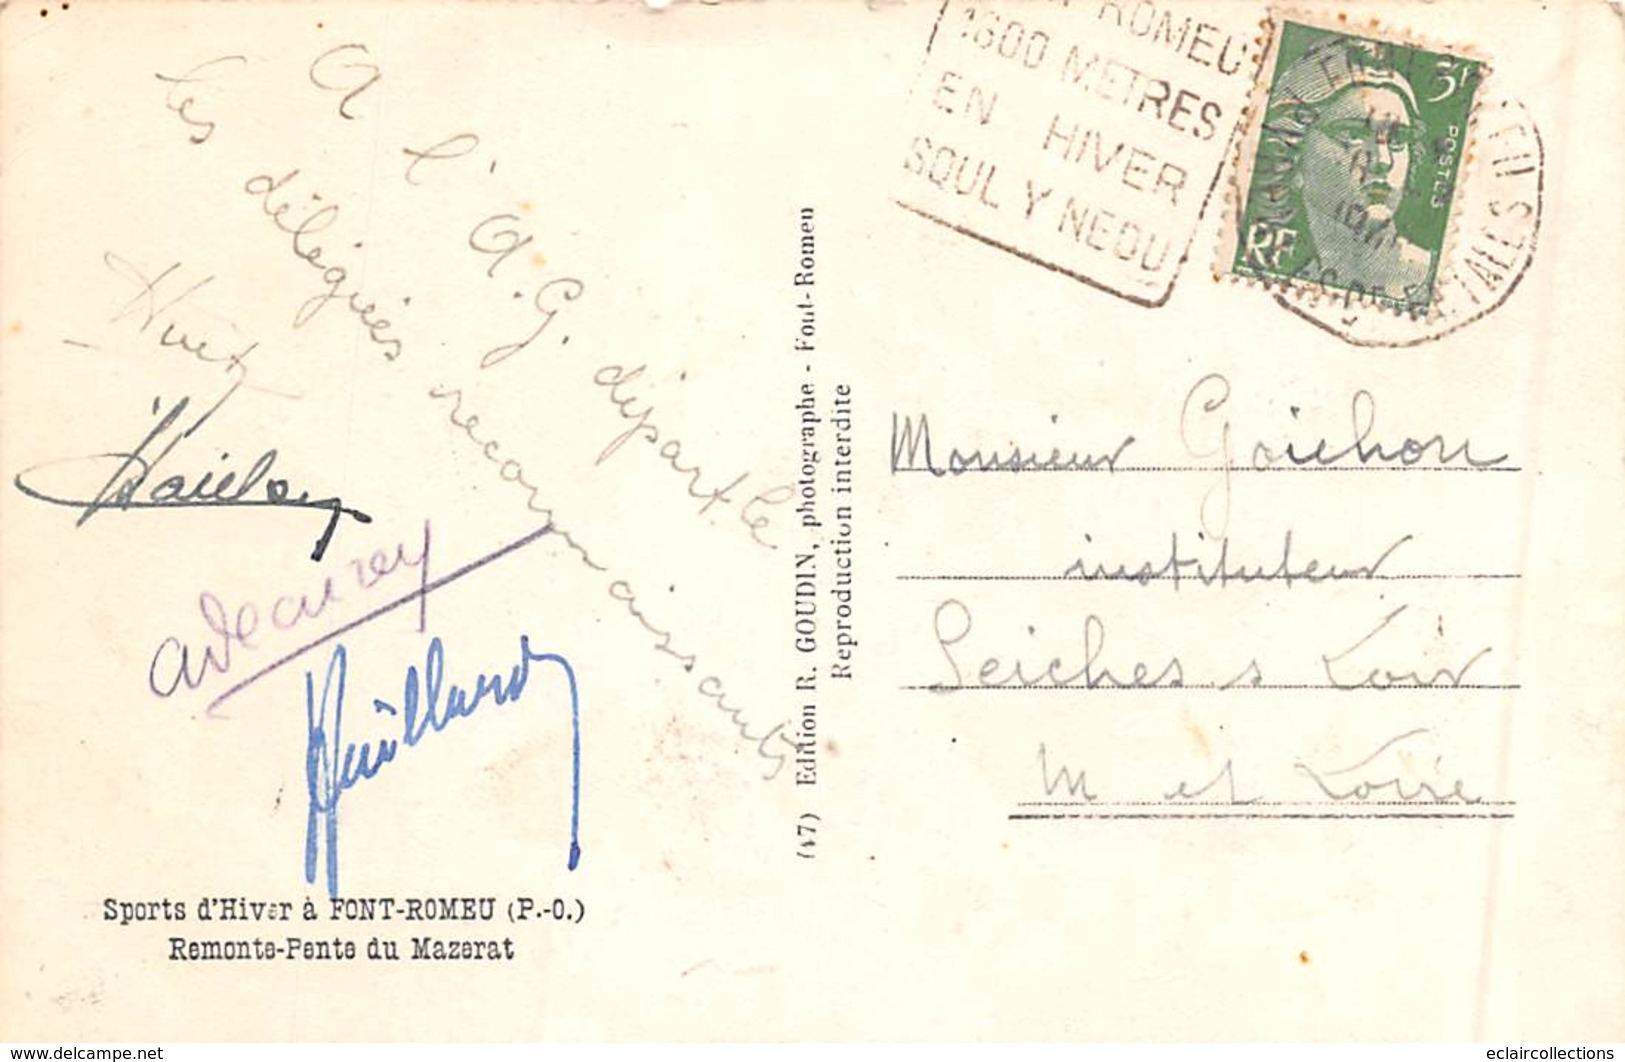 A l'A.G. départ.le
les délégués reconnaissants
Sports d'Hiver à FONT-ROMEU (P.-O.)
Remonte-Pente du Mazerat
(47) Edition R. GOUDIN, photographe - Font-Romeu
Reproduction interdite
ROMEU
1800 METRES
EN HIVER
SOUL Y NEOU
3F
POSTES
RF
Monsieur Goichon
instituteur
Seiches s Loir
M et Loire
delcampe.net
eclaircollections